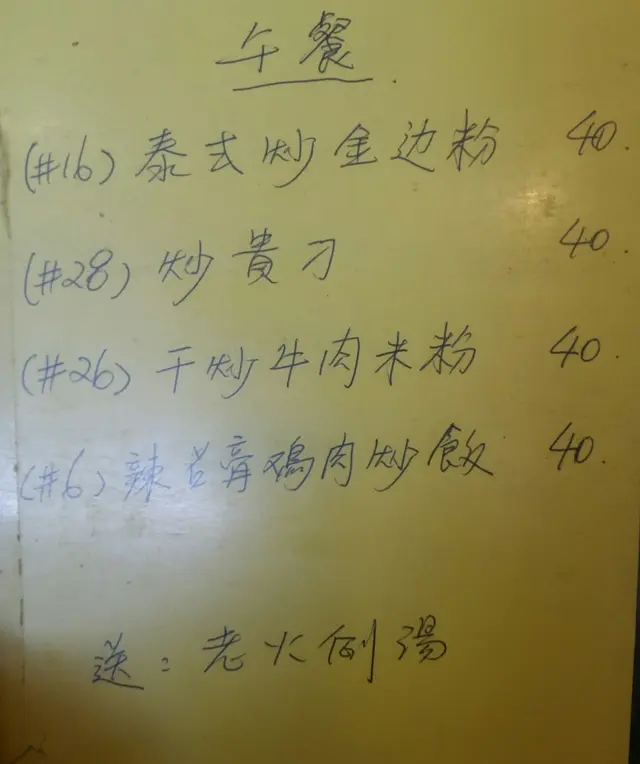 午餐
(#16) 泰式炒金边粉 40.
(#28) 炒貴刁 40.
(#26) 干炒牛肉米粉 40.
(#6) 辣召膏鸡肉炒飯 40.
送：老火例湯